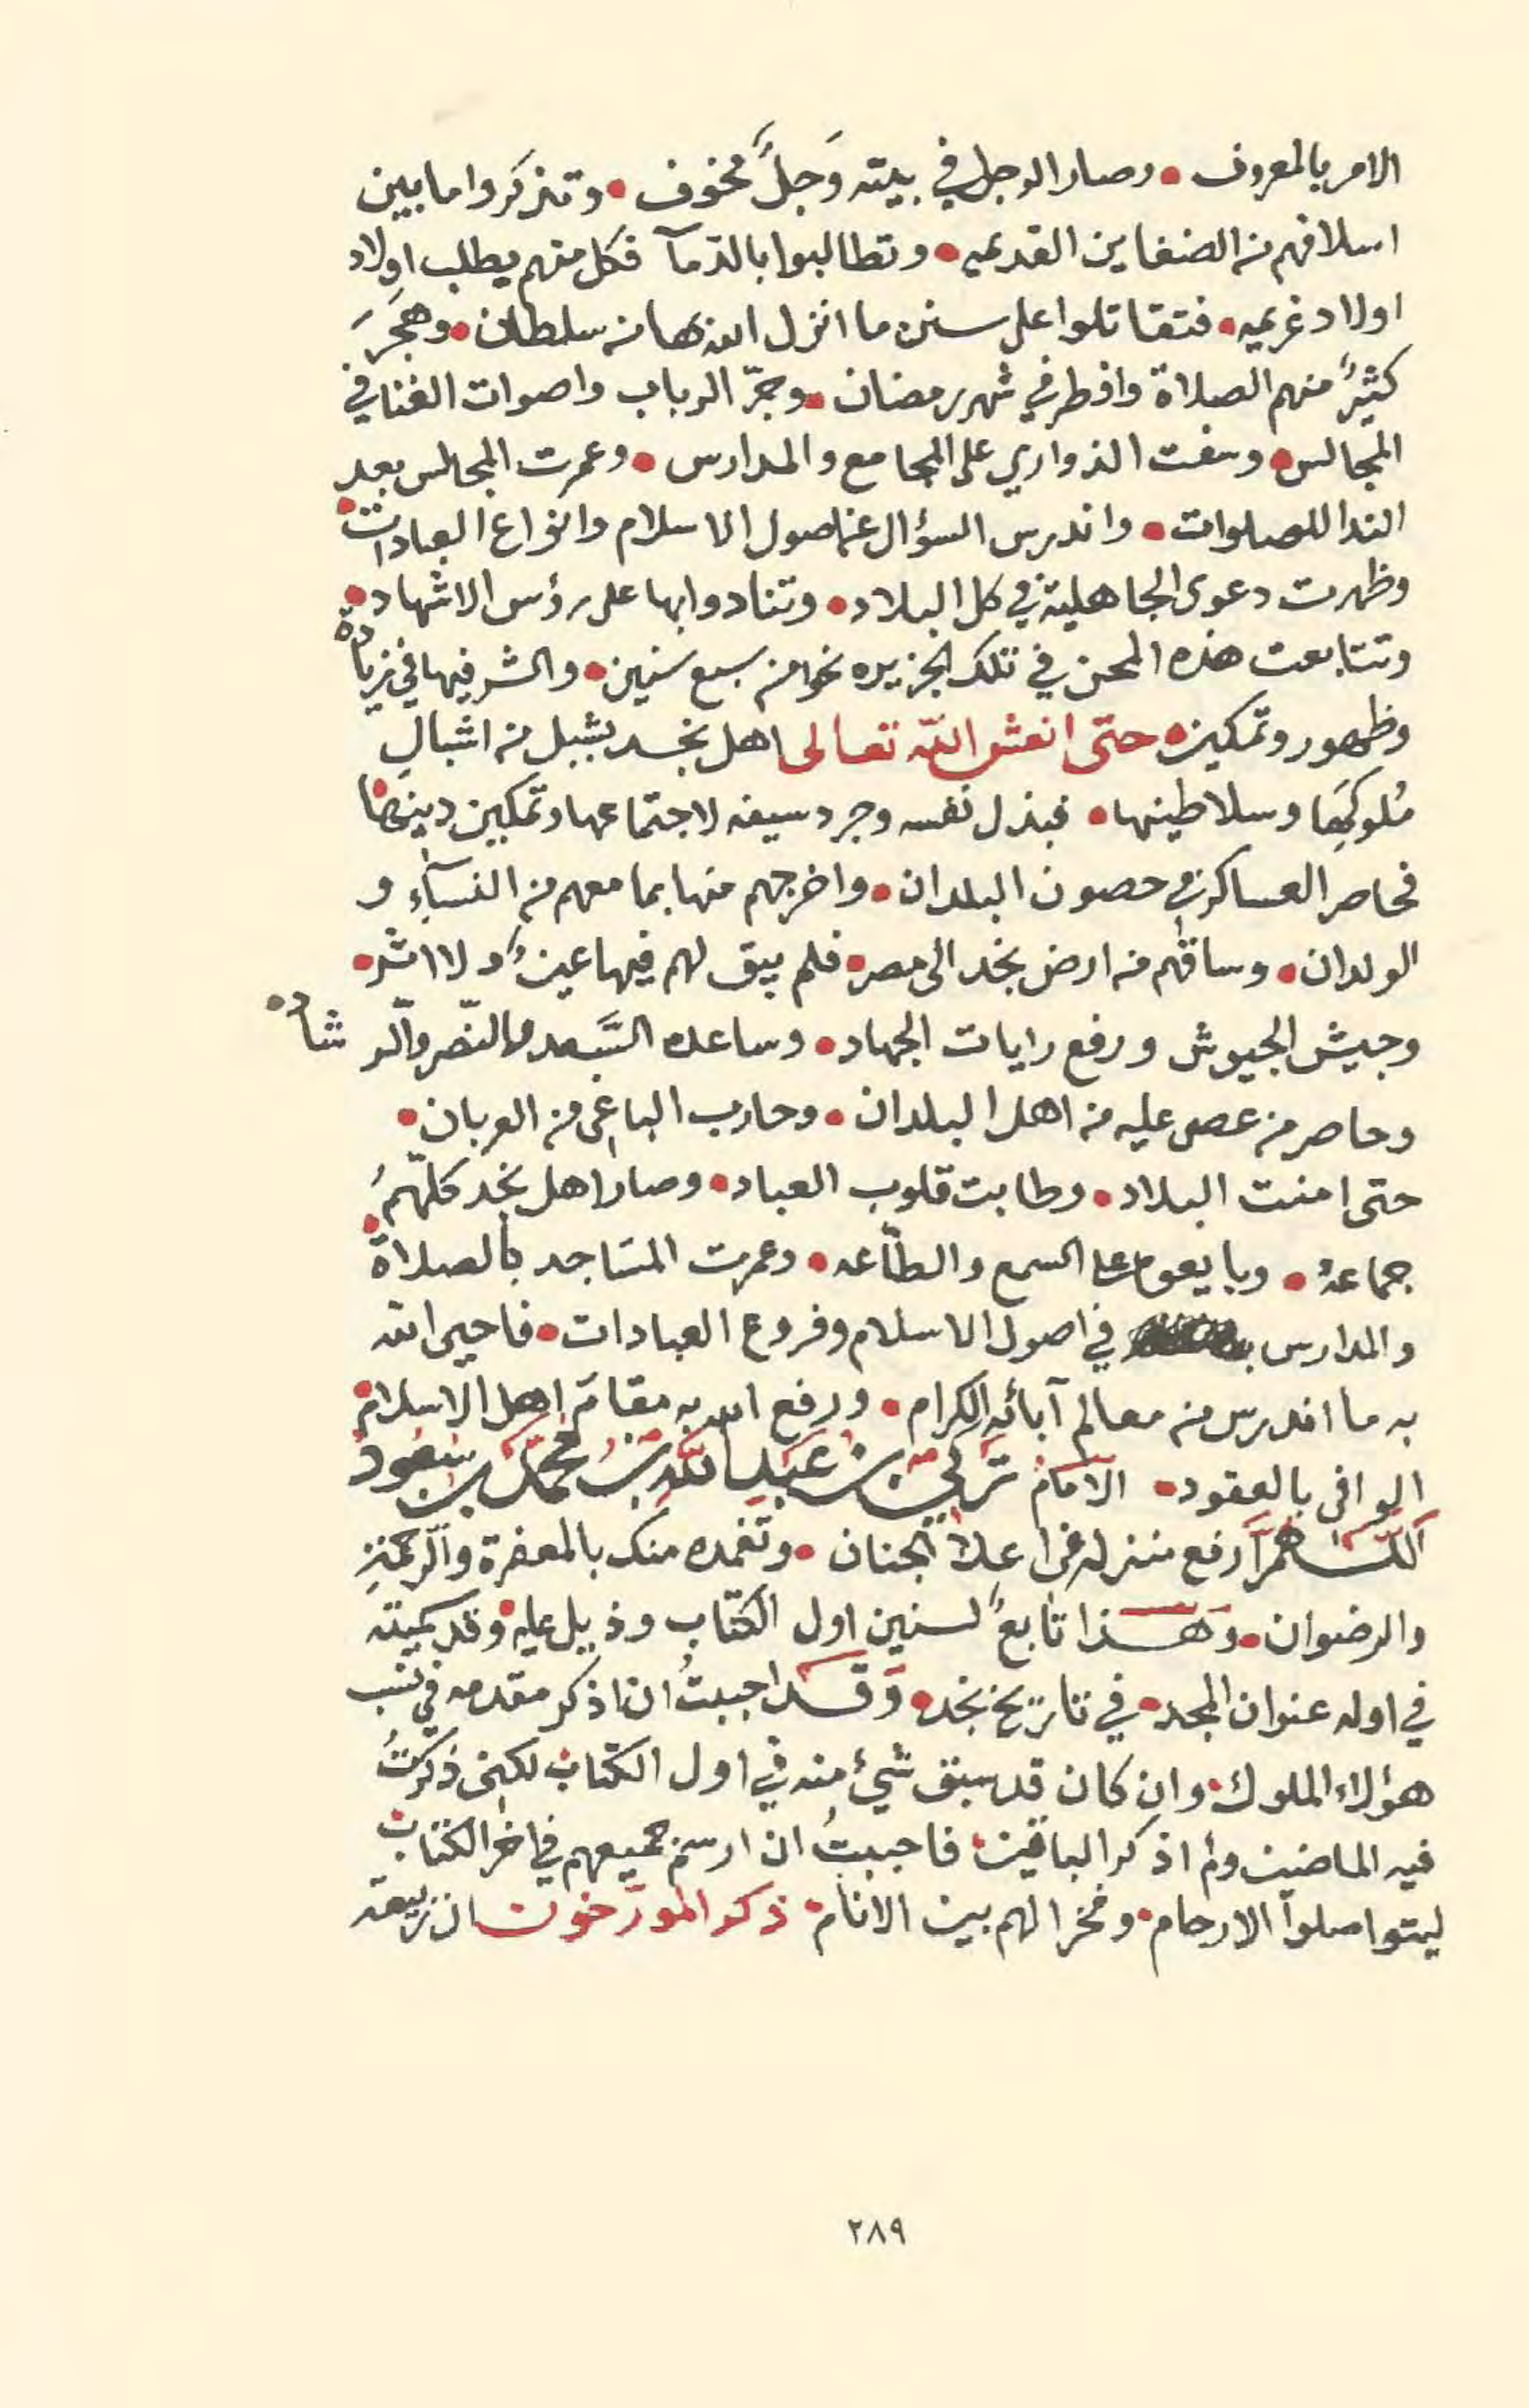 الامر بالمعروف • وصار الرجل في بيته وَجِلًا مخوف • وتذكروا ما بين
اسلافهم من الضغاين القديمه • وتطالبوا بالدّمآ فكل منهم يطلب اولاد
اولاد غريمه • فتقاتلوا على سنن ما انزل الله بها من سلطان • وهَجَرَ
كثيرٌ منهم الصلاة وافطر في شهر رمضان • وجرّ الرباب واصوات الغنا في
المجالس • وسفت الذواري على المجامع والمدارس • وعمرت المجالس بعد
الندا للصلوات • واندرس السؤال عن اصول الاسلام وانواع العبادات •
وظهرت دعوى الجاهلية في كل البلاد • وتنادوا بها على رؤس الاشهاد •
وتتابعت هذه المحن في تلك الجزيره نحوا من سبع سنين • والشر فيها في زيادة
وظهور وتمكين • حتى انعش الله تعالى اهل نجد بشبل من اشبالِ
مُلوكِهَا وسلاطينها • فبذل نفسه وجرد سيفه لاجتماعها وتمكين دينها •
فحاصر العساكر في حصون البلدان • واخرجهم منها بما معهم من النسآءِ و
الولدان • وساقهم من ارض نجد الى مصر • فلم يبق لهم فيها عينٌ ولا اثر •
وجيش الجيوش ورفع رايات الجهاد • وساعده السَّعد والنّصر والرشاد •
وحاصر من عصى عليه من اهل البلدان • وحارب الباغى من العربان •
حتى امنت البلاد • وطابت قلوب العباد • وصار اهل نجد كلّهمُ
جماعهْ • وبايعوه على السمع والطّاعه • وعمرت المسَاجد بالصلاة •
والمدارس في اصول الاسلام وفروع العبادات • فاحيى الله
به ما اندرس من معالم آبائهِ الكرام • ورفع الله به مقامَ اهل الاسلام •
الوافى بالعقود • الامام تركي بن عبد الله بن محمد بن سعود
اللّهمَّ ارفع منزله فى اعلا الجنان • وتغمده منك بالمغفرة والرحمةِ
والرضوان • وَهذا تابعٌ لسنين اول الكتاب وذيل عليه • وقد سميته
في اوله عنوان المجد • في تاريخ نجد • وَقد احببتُ ان اذكر مقدمه في نسب
هؤلاء الملوك • وان كان قد سبق شيئ منه في اول الكتاب لكنى ذكرتُ
فيه الماضين ولم اذكر الباقين • فاحببتُ ان ارسم جميعهم في اخر الكتاب •
ليتواصلوا الارحام • وفخرا لهم بين الانام • ذكر المورّخون ان ربيعة
٢٨٩